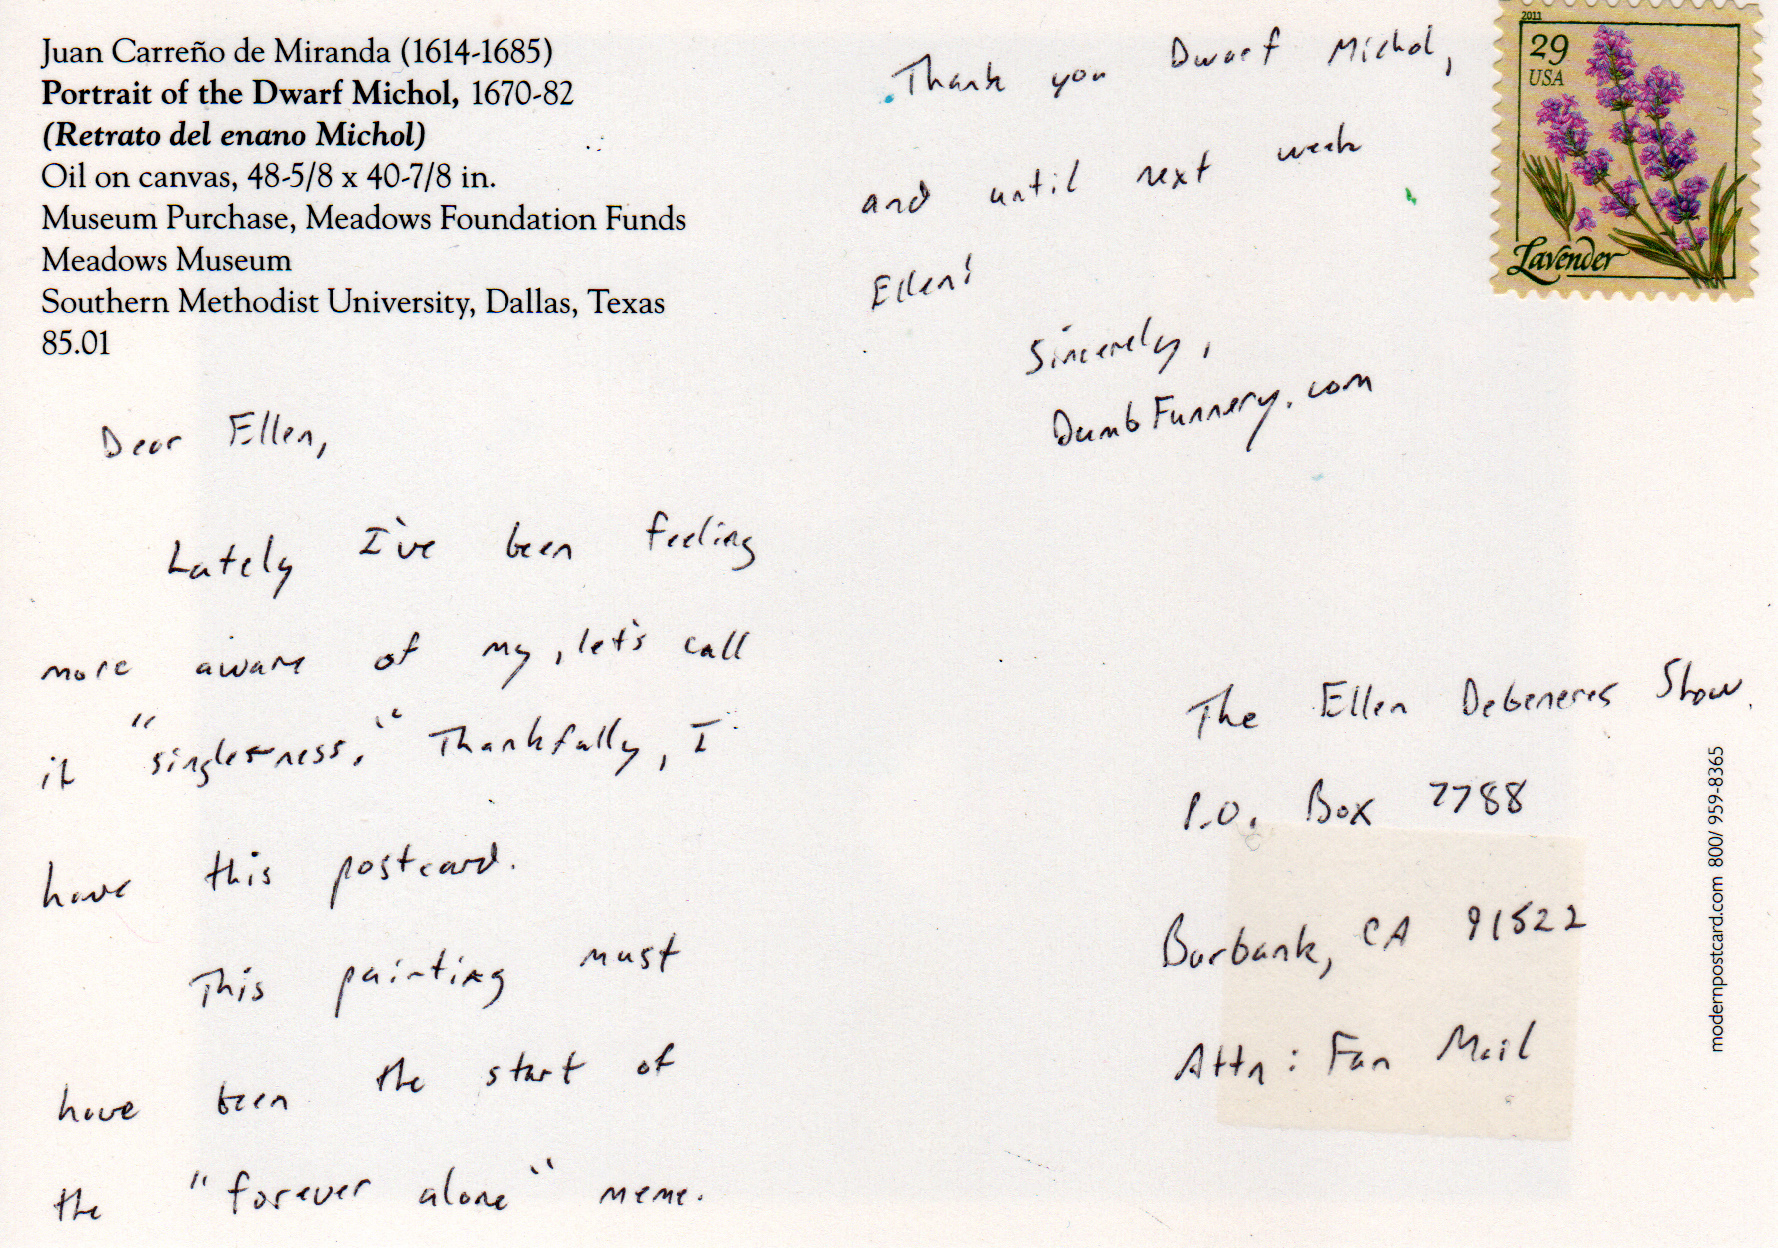 Juan Carreño de Miranda (1614-1685)
Portrait of the Dwarf Michol, 1670-82
(Retrato del enano Michol)
Oil on canvas, 48-5/8 x 40-7/8 in.
Museum Purchase, Meadows Foundation Funds
Meadows Museum
Southern Methodist University, Dallas, Texas
85.01
Dear Ellen,
Lately I've been feeling
more aware of my, let's call
it "singleness." Thankfully, I
have this postcard.
This painting must
have been the start of
the "forever alone" meme.
Thank you Dwarf Michol,
and until next week
Ellen!
Sincerely,
DumbFunnery.com
2011
29
USA
Lavender
The Ellen Degeneres Show
P.O. Box 7788
Burbank, CA 91522
Attn: Fan Mail
modernpostcard.com 800/ 959-8365